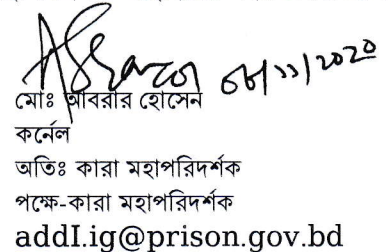 ০৮/১১/২০২০
মোঃ আবরার হোসেন
কর্নেল
অতিঃ কারা মহাপরিদর্শক
পক্ষে-কারা মহাপরিদর্শক
addI.ig@prison.gov.bd